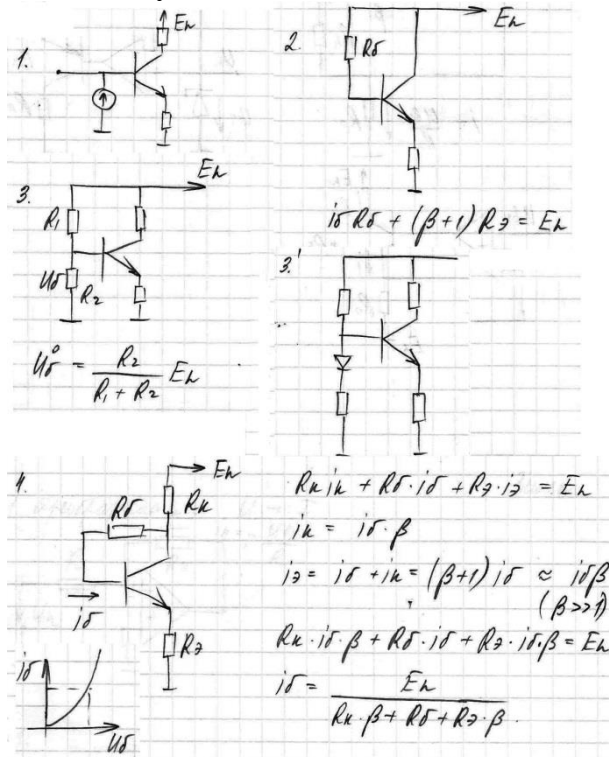 1.
Eп
2.
Rб
iб Rб + (β+1) Rэ = Eп
3.
Eп
R₁
Uб
R₂
Uб⁰ = R₂ / (R₁ + R₂) Eп
3.'
4.
Eп
Rб
Rк
iб
Rэ
iб
Uб
Rк iк + Rб · iб + Rэ · iэ = Eп
iк = iб · β
iэ = iб + iк = (β+1) iб ≈ iб β
(β>>1)
Rк · iб · β + Rб · iб + Rэ · iб · β = Eп
iб = Eп / (Rк · β + Rб + Rэ · β)